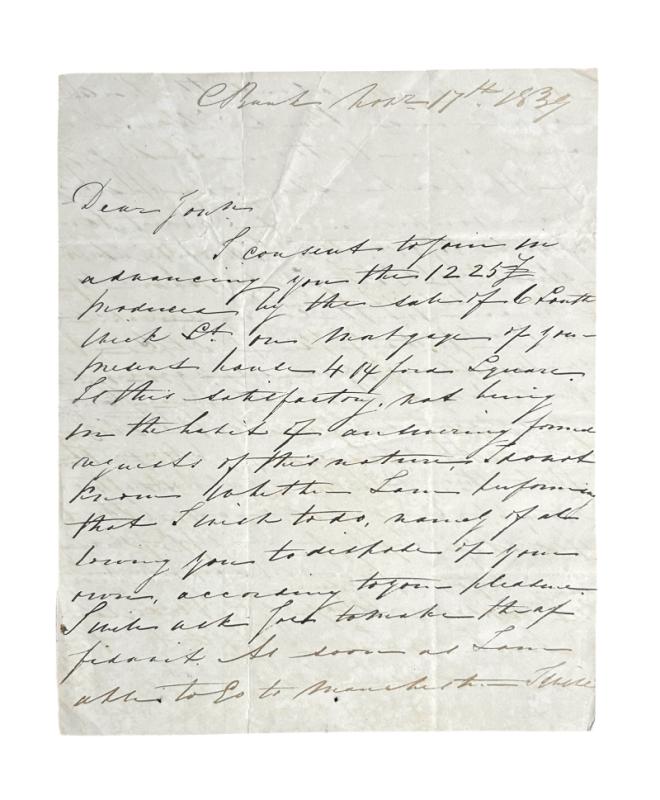 Bank Novr 17th 1839
Dear John
I consent to join in
advancing you the 1225£
produced by the sale of 6 South
wick St. on mortgage of your
present house 4 Hyford Square.
Is this satisfactory, not being
in the habit of answering formal
requests of this nature, I do not
know whether I am performing
that I wish to do, namely of al
lowing you to dispose of your
own, according to your pleasure.
I will ask Joes to make the af
fidavit. As soon as I am
able to go to Manchester I will